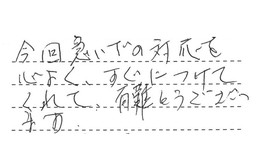 今回急いでの対応を
心よく、すぐにつけて
くれて、有難とうござい
ます。